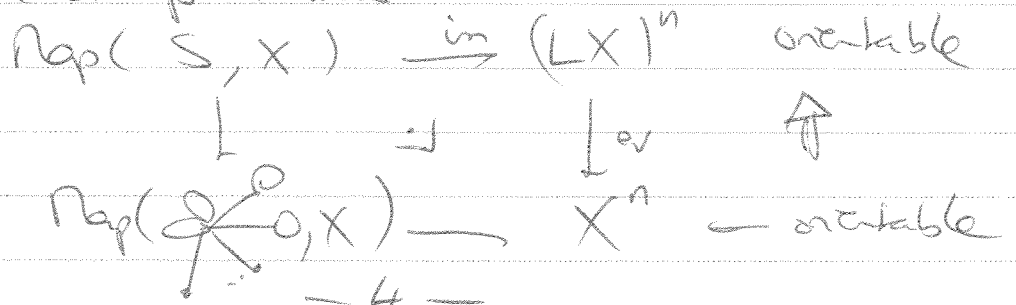 Map( S, X ) in→ (LX)^n orientable
↓ ⌟ ↓ ev ⇑
Map( , X ) → X^n ← orientable
— 4 —